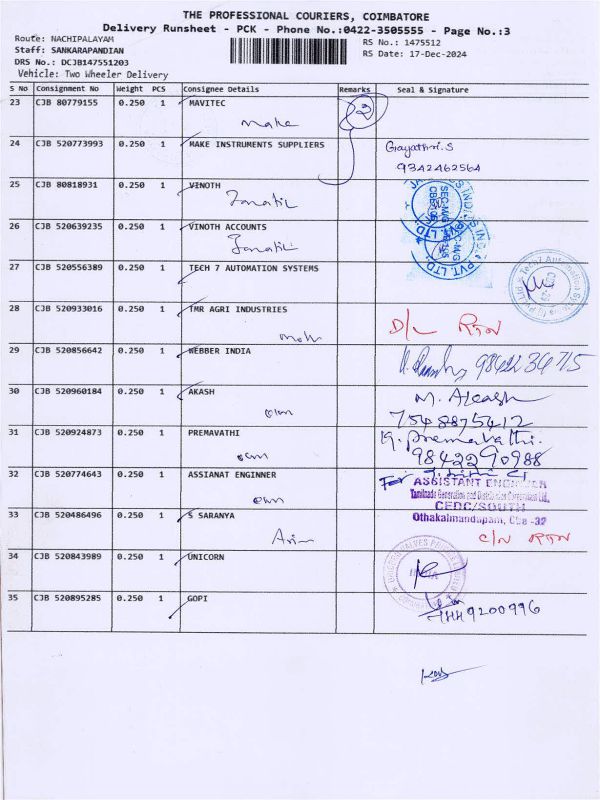 THE PROFESSIONAL COURIERS, COIMBATORE
Delivery Runsheet - PCK - Phone No.:0422-3505555 - Page No.:3
Route: NACHIPALAYAM
RS No.: 1475512
Staff: SANKARAPANDIAN
RS Date: 17-Dec-2024
DRS No.: DCJB147551203
Vehicle: Two Wheeler Delivery
S No Consignment No Weight PCS Consignee Details Remarks Seal & Signature
23 CJB 80779155 0.250 1 MAVITEC 2
make
24 CJB 520773993 0.250 1 MAKE INSTRUMENTS SUPPLIERS Gayathri.S
9342462564
25 CJB 80818931 0.250 1 VINOTH
26 CJB 520639235 0.250 1 VINOTH ACCOUNTS
27 CJB 520556389 0.250 1 TECH 7 AUTOMATION SYSTEMS
28 CJB 520933016 0.250 1 TMR AGRI INDUSTRIES
D/L RTN
29 CJB 520856642 0.250 1 WEBBER INDIA
30 CJB 520960184 0.250 1 AKASH M. Akash
own 7548875412
31 CJB 520924873 0.250 1 PREMAVATHI premavathi.
own 9842290988
32 CJB 520774643 0.250 1 ASSIANAT ENGINNER For ASSISTANT ENGINEER
own Tamilnadu Generation and Distribution Corporation Ltd.,
CEDC/SOUTH
33 CJB 520486496 0.250 1 S SARANYA Othakalmandapam, Cbe -32
C/N RTN
34 CJB 520843989 0.250 1 UNICORN
35 CJB 520895285 0.250 1 GOPI